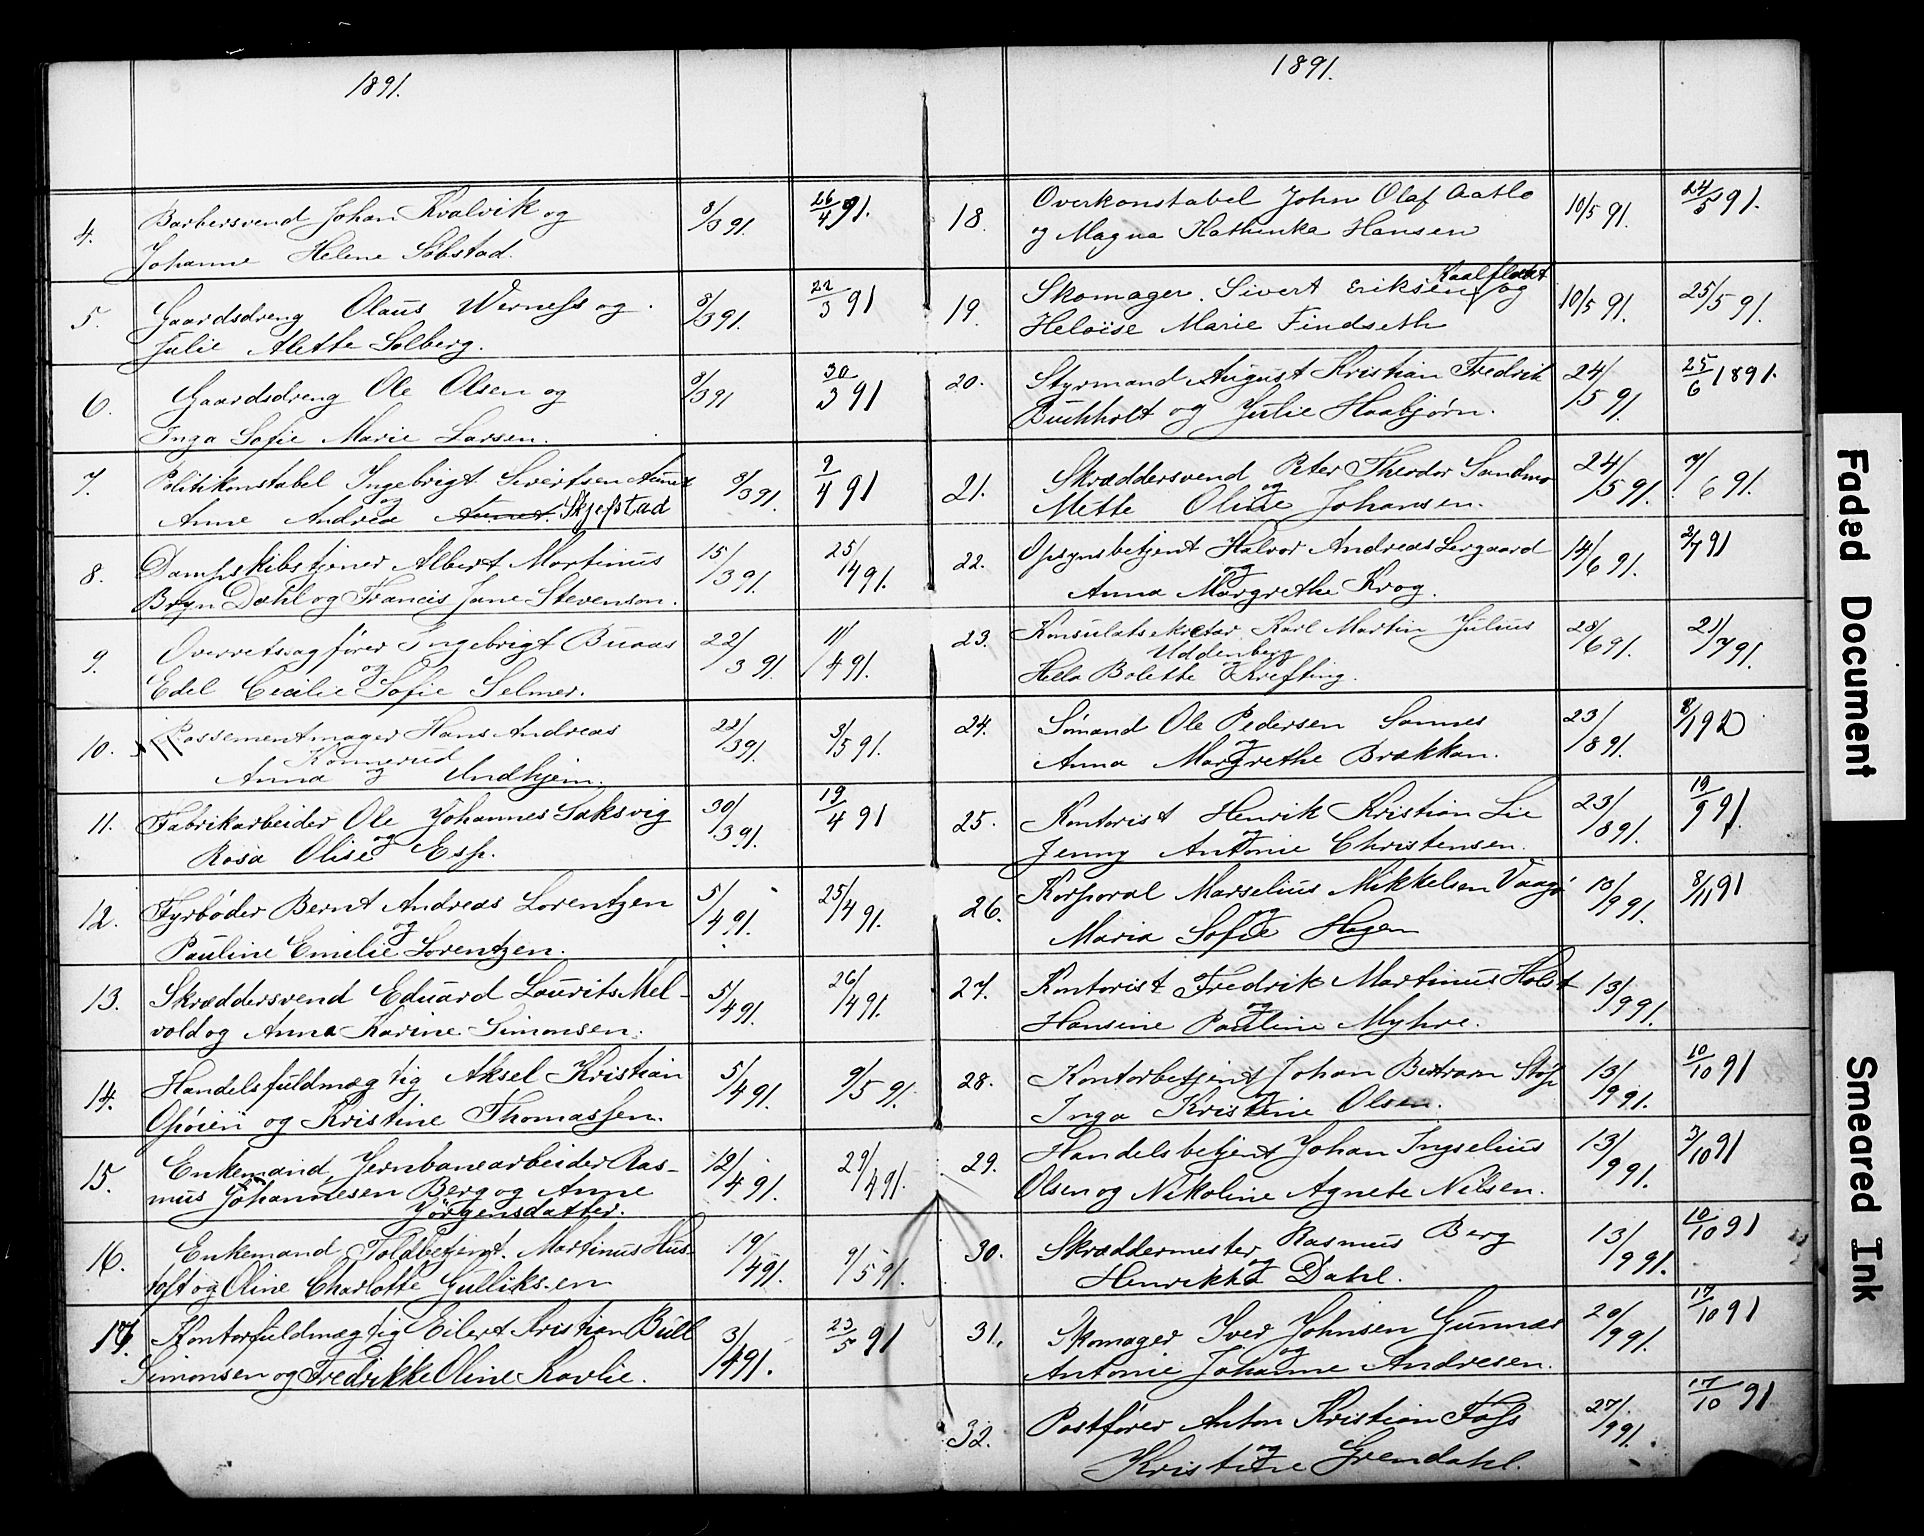 1891.
4. Barbersvend Johan Kvalvik og 8/3 91. 26/4 91.
Johanne Helene Søbstad.
5. Gaardsdreng Olaus Werness og 8/3 91. 22/3 91
Julie Alette Solberg.
6. Gaardsdreng Ole Olsen og 8/3 91 30/3 91
Inga Sofie Marie Larsen.
7. Politikonstabel Ingebrigt Sivertsen Aunet 8/3 91. 9/4 91
og
Anne Andrea Aunet. Skjefstad
8. Dampskibstjener Albert Martinus 15/3 91. 25/4 91.
Bryn Dahl og Francis Jane Stevenson.
9. Overretssagfører Ingebrigt Buaas 22/3 91. 11/4 91.
og
Edel Cecilie Sofie Selmer.
10. Possementmager Hans Andreas 22/3 91. 3/5 91.
Konnerud
Anna og Undhjem.
11. Fabrikarbeider Ole Johannes Saksvig 30/3 91. 19/4 91
og
Rosa Olise Esp.
12. Fyrbøder Bernt Andreas Lorentzen 5/4 91. 25/4 91.
og
Pauline Emilie Lorentzen.
13. Skræddersvend Eduard Laurits Mel- 5/4 91. 26/4 91.
vold og Anna Karine Simonsen.
14. Handelsfuldmægtig Aksel Kristian 5/4 91. 9/5 91.
Opøien og Kristine Thomassen.
15. Enkemand, Jernbanearbeider Ras- 12/4 91. 29/4 91.
mus Johannesen Berg og Anne
Jörgensdatter.
16. Enkemand, Toldbetjent. Martinus Hus- 19/4 91. 9/5 91.
toft og Oline Charlotte Gulliksen
17. Kontorfuldmægtig Eilert Kristian Bull 3/4 91. 23/5 91
Simonsen og Fredrikke Oline Kavlie.
1891.
18. Overkonstabel John Olaf Aatlo 10/5 91. 24/5 91.
og Magna Kathinka Hansen
Kaalflækt
19. Skomager. Sivert Eriksen og 10/5 91. 25/5 91.
Heloise Marie Findseth
20. Styrmand August Kristian Fredrik 24/5 91. 25/6 1891.
Buchholt og Julie Haabjørn.
21. Skræddersvend Peter Theodor Sandmo 24/5 91. 7/6 91.
og
Mette Oline Johansen.
22. Opsynsbetjent Halvor Andreas Lergaard 14/6 91. 2/7 91
og
Anna Margrethe Krog.
23. Konsulatsekretær. Karl Martin Julius 28/6 91. 21/7 91.
Uddenberg
og
Hela Bolette Krefting.
24. Sømand Ole Pedersen Sannes 23/8 91. 8/1 92
og
Anna Margrethe Brækkan.
25. Kontorist Henrik Kristian Lie 23/8 91. 19/9 91.
og
Jenny Antonie Christensen.
26. Korporal Marselius Mikkelsen Vaagø 13/9 91. 8/11 91
og
Maria Sofie Hagen
27. Kontorist Fredrik Martinus Holst 13/9 91.
og
Hansine Pauline Myhre.
28. Kontorbetjent Johan Bertram Stop 13/9 91. 10/10 91
og
Inga Kristine Olsen.
29. Handelsbetjent Johan Ingselius 13/9 91. 3/10 91
Olsen og Nikoline Agnete Nilsen.
30. Skræddermester Rasmus Berg 13/9 91. 10/10 91
og
Henrikke Dahl.
31. Skomager Iver Johnsen Gunnæs 20/9 91. 17/10 91
og
Antonie Johanne Andresen.
32. Postfører Anton Kristian Foss 27/9 91. 17/10 91
og
Kristine Grendahl.
Faded Document
Smeared Ink